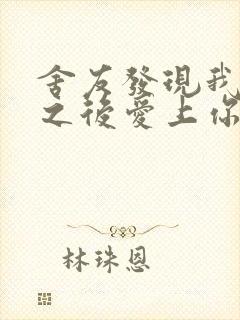 舍友發現我
之後愛上你
林珠恩